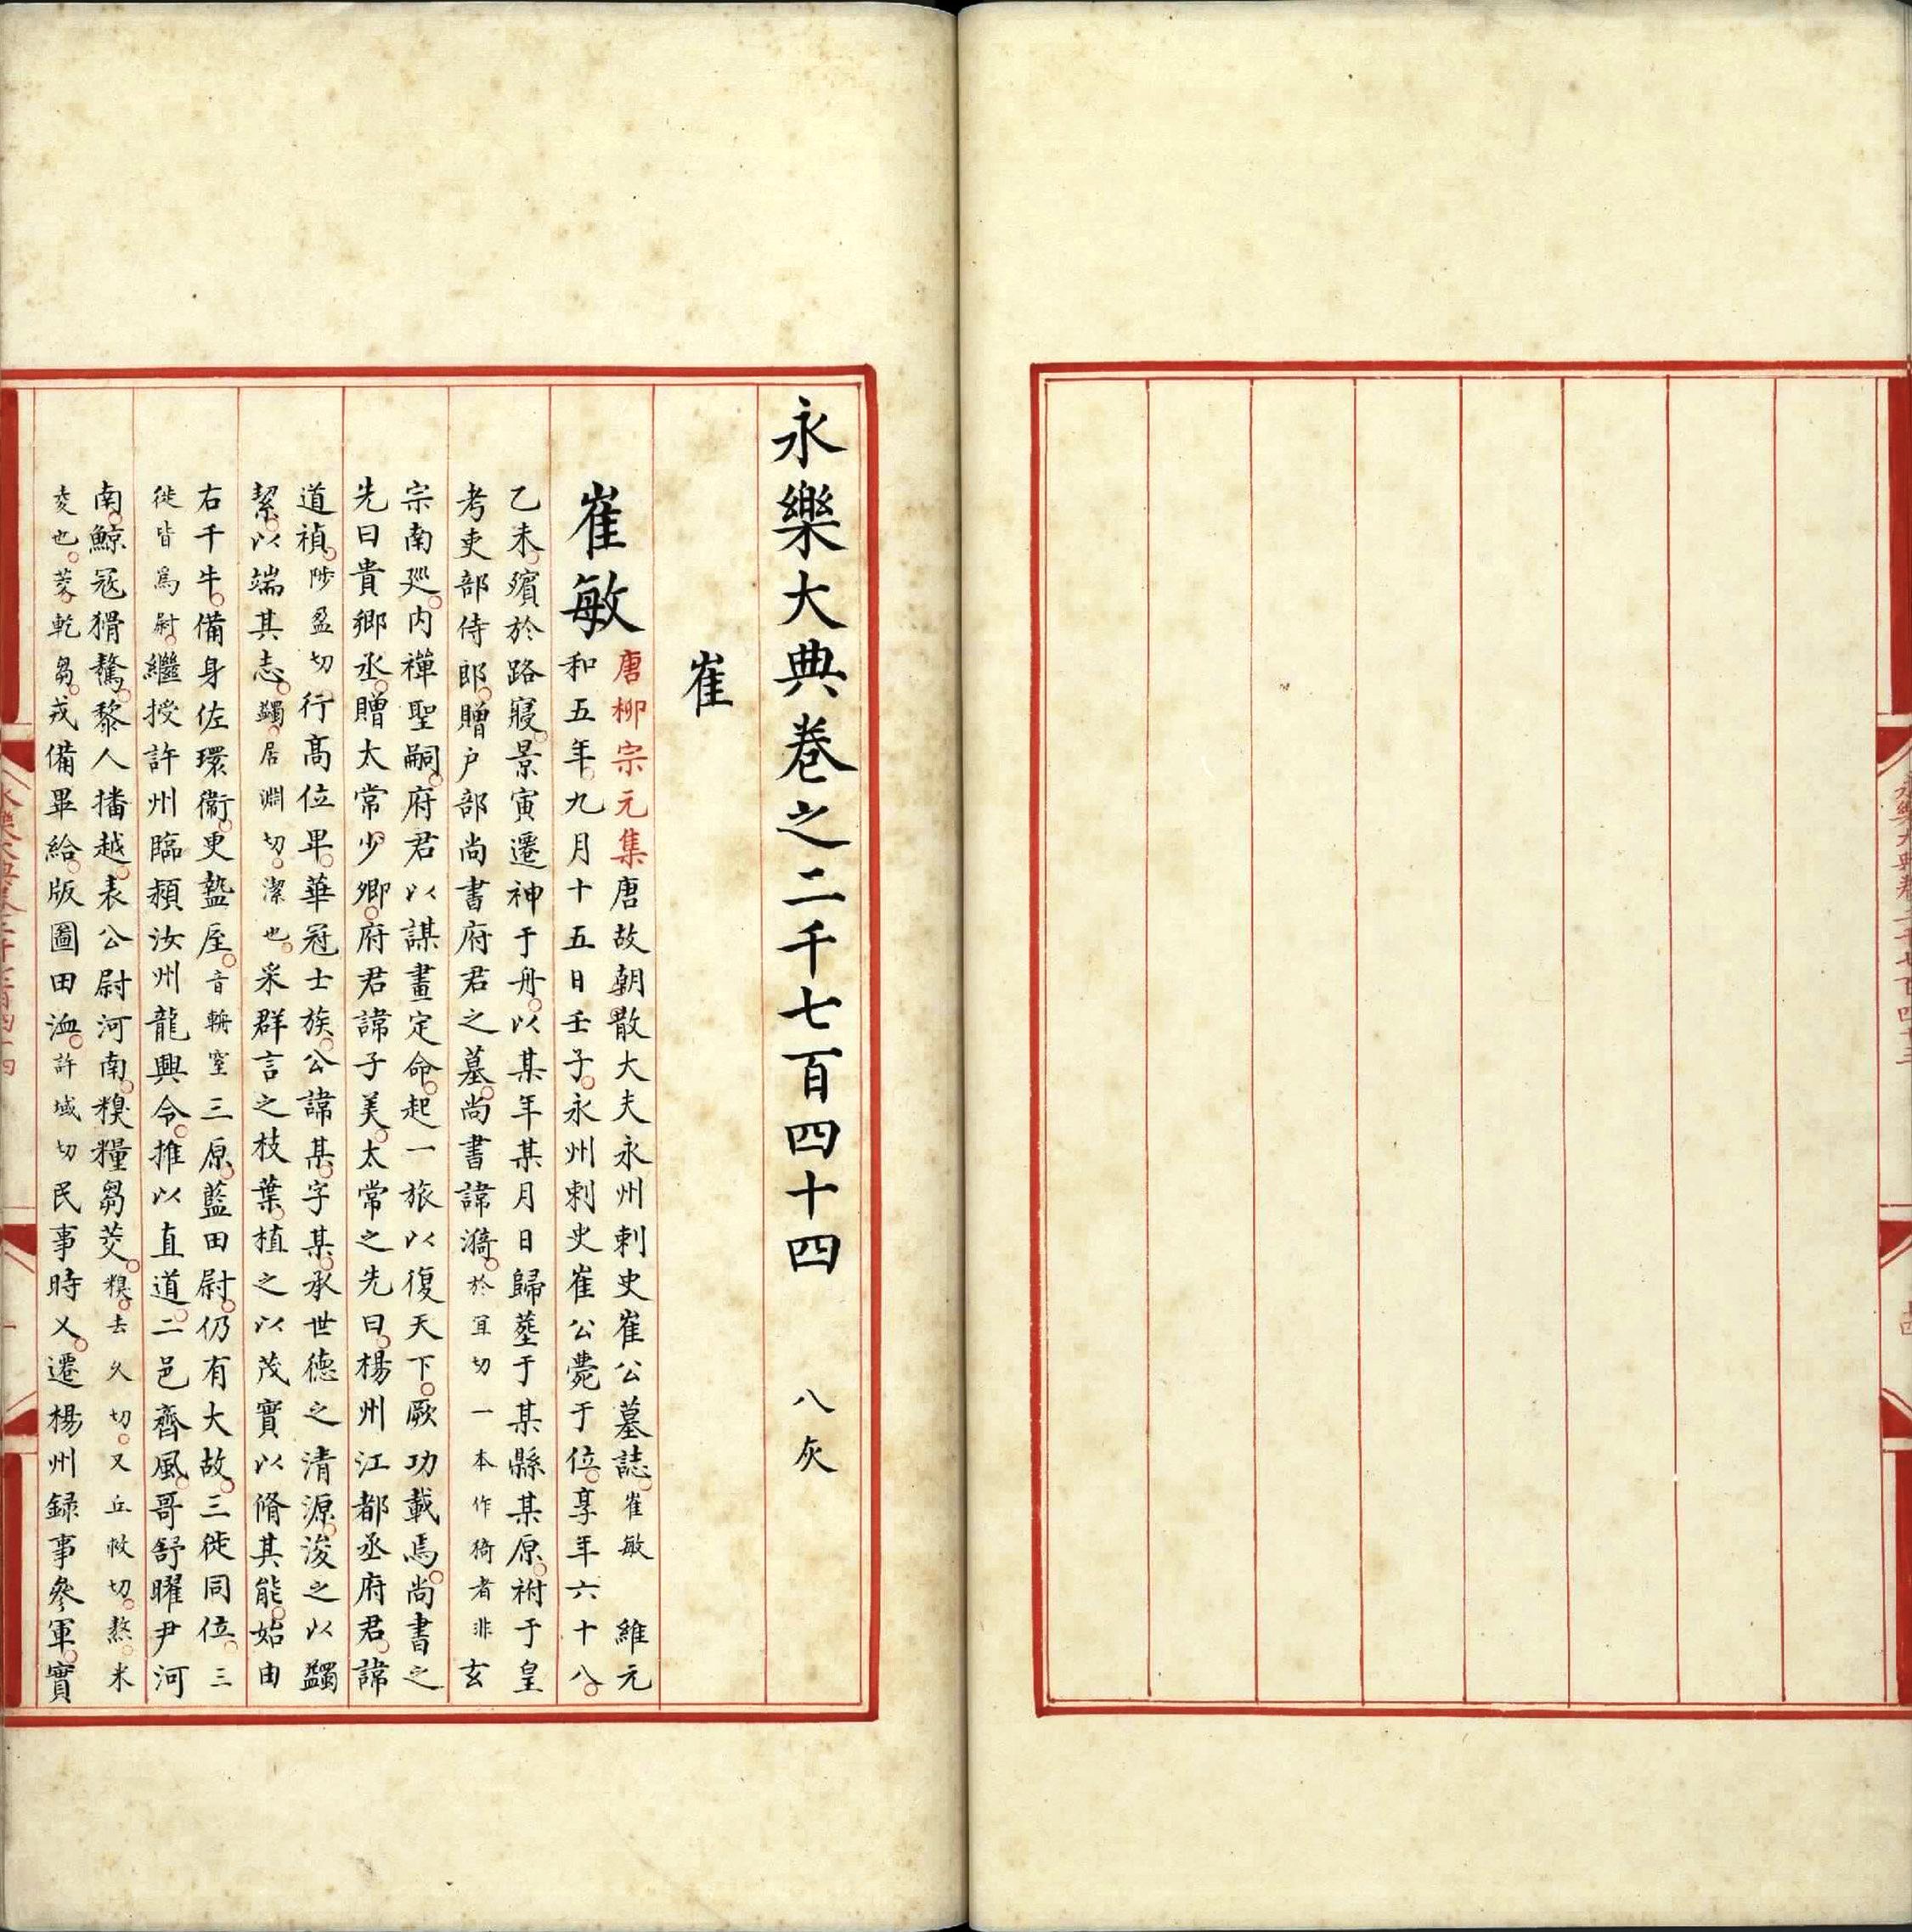 永樂大典卷二千七百四十三
永樂大典卷之二千七百四十四 八灰
崔
崔敏
唐柳宗元集唐故朝散大夫永州刺史崔公墓誌崔敏 維元
和五年九月十五日壬子永州刺史崔公薨于位享年六十八
乙未殯於路寢景寅遷神于舟以某年某月日歸葬于某縣某原祔于皇
考吏部侍郎贈户部尚書府君之墓尚書諱漪於宜切一本作猗者非玄
宗南廵内禪聖嗣府君以謀畫定命起一旅以復天下厥功載焉尚書之
先曰貴鄉丞贈太常少卿府君諱子美太常之先曰楊州江都丞府君諱
道禎陟盈切行髙位卑華冠士族公諱某字某承世德之清源浚之以蠲
絜以端其志蠲居淵切潔也采群言之枝葉植之以茂實以脩其能始由
右千牛備身佐環衞更盩厔音輈窒三原藍田尉仍有大故三徙同位三
徙皆爲尉繼授許州臨潁汝州龍興令推以直道二邑齊風哥舒曜尹河
南鯨冦猾驁黎人播越表公尉河南糗糧芻茭糗去久切又丘救切熬米
麥也茭乾芻戎備畢給版圖田洫許域切民事時乂遷楊州録事參軍實